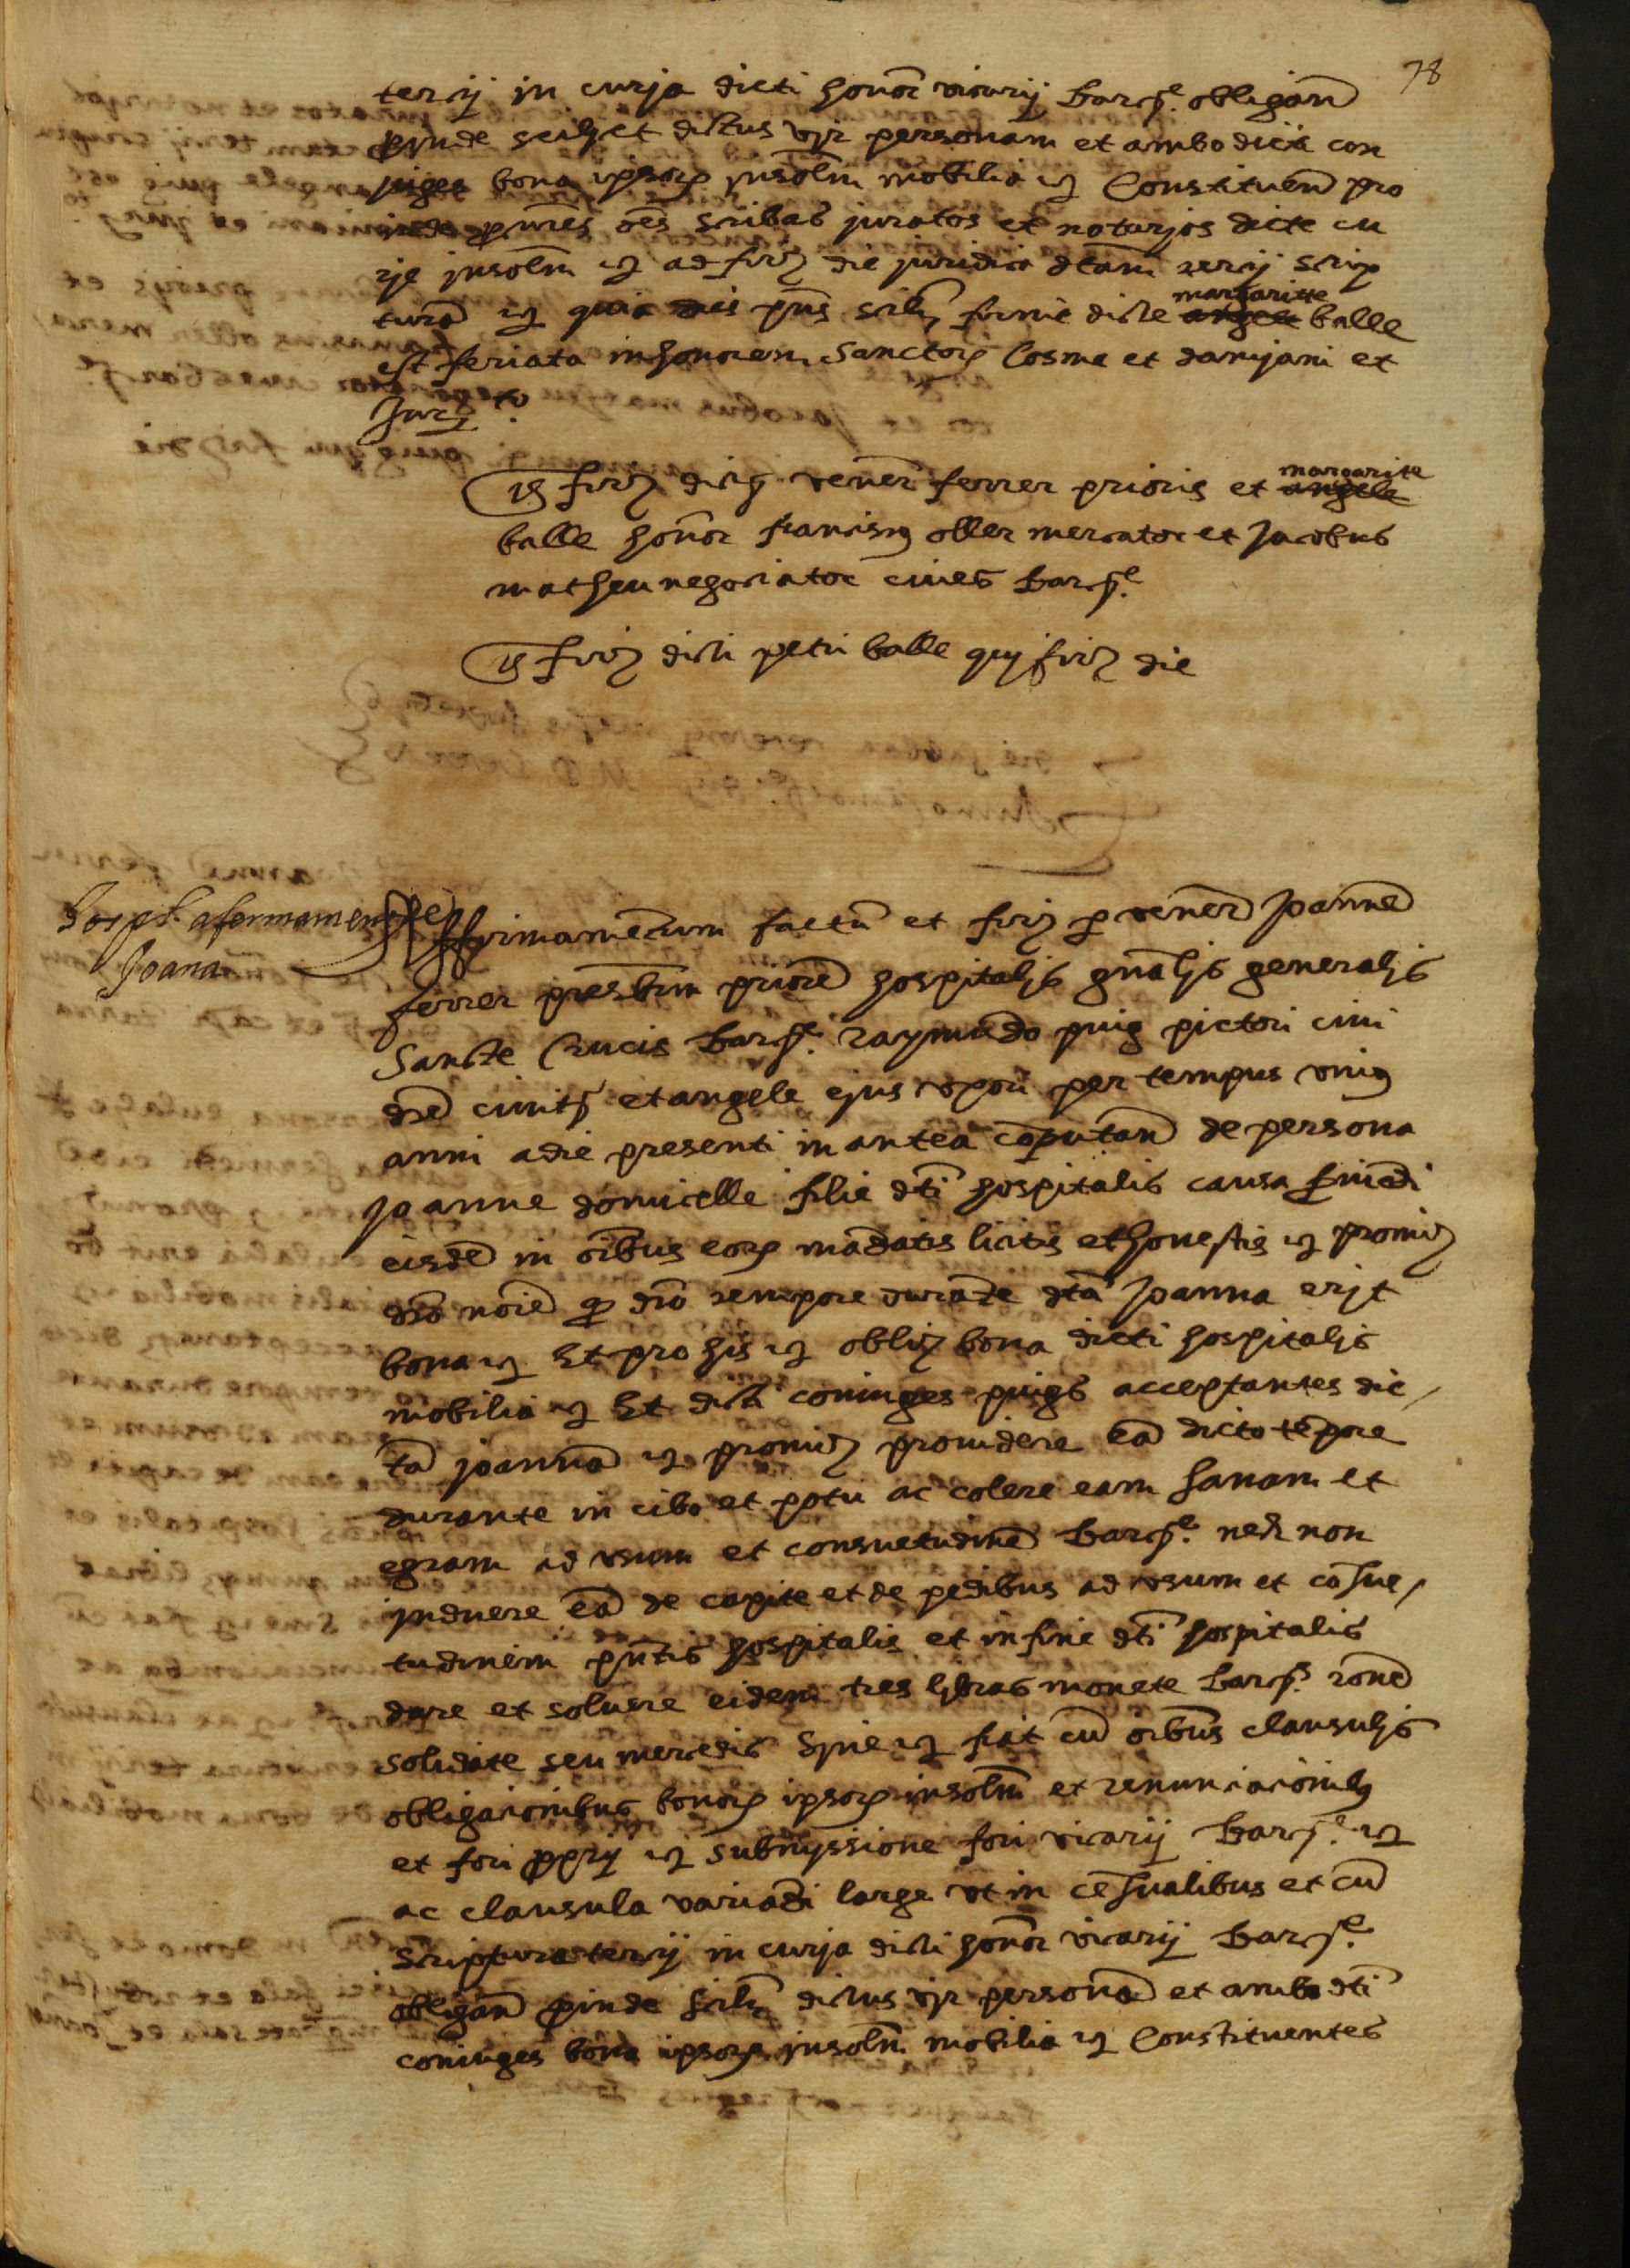 78
tercij in curja dicti honor vicarij barcne. obligan
proinde scilicet dictus vir personam et ambo dicti con
juges bona ipsor insolm mobilia etc Constituen pro
inde pnres oes scribas juratos et notarjos dicte cu
rje insolm etc ad firm die juridica dtam tercij scrip
turã etc quia dies pns scilt firme dicte margarite balle
est feriata in honorem Sanctor Cosme et damjani et
Jurt to
Ts firm dictor vener ferrer prioris et margarite
balle honor franciscus oller mercator et Jacobus
matheu negociator ciues barcne.
Ts firm dicti petri balle qui firm die
Hospl. afermament de
Joana
Affirmamẽtum factũ et firm p venerẽ Joannẽ
ferrer presbm priorẽ hospitalis gnalis generalis
Sancte Crucis barcne. raymũdo puig pictori ciui
dce ciuits et angele ejus vxori per tempus vnius
anni a die presenti in antea cõputan de persona
Joanne domicelle filie dti hospitalis causa seruiẽdi
eisdẽ in oibus eor mãdatis licitis et honestis etc promit
dco noie q dco tempore durãte dta Joanna erit
bona etc Et pro his etc oblig bona dicti hospitalis
mobilia etc Et dicti coniuges puigs acceptantes dic
tã joannã etc promit prouidere eã dicto tẽpore
durante in cibo et potu ac colere eam sanam et
egram ad vsum et consuetudinẽ barcne. nech non
induere eã de capite et de pedibus ad vsum et cõsue
tudinem pntis hospitalis et in fine dti hospitalis
dare et soluere eidem tres libras monete barcne. ronẽ
solidate seu mercedis Sine etc fiat cũ oibus clausulis
obligacionibus bonor ipsor insolm et renunciacionibus
et fori proprij etc submyssione fori vicarij barcne. etc
ac clausula variãdi large vt in cẽsualibus et cũ
Scriptura tercij in curja dicti honor vicarij barcne.
obligan proinde scilt dictus vir personã et ambo dti
coniuges bona ipsor insolm mobilia etc Constituentes